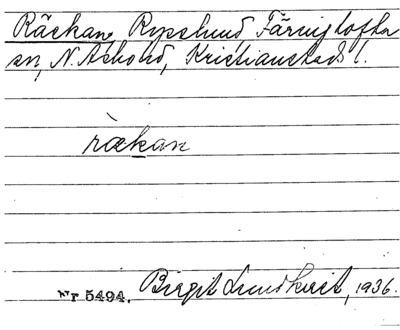 Räckan, Rysslund, Färingtofta
sn, N. Åsbo hd, Kristianstads l.
rækan
Nr 5494. Birgit Lundkvist, 1936.